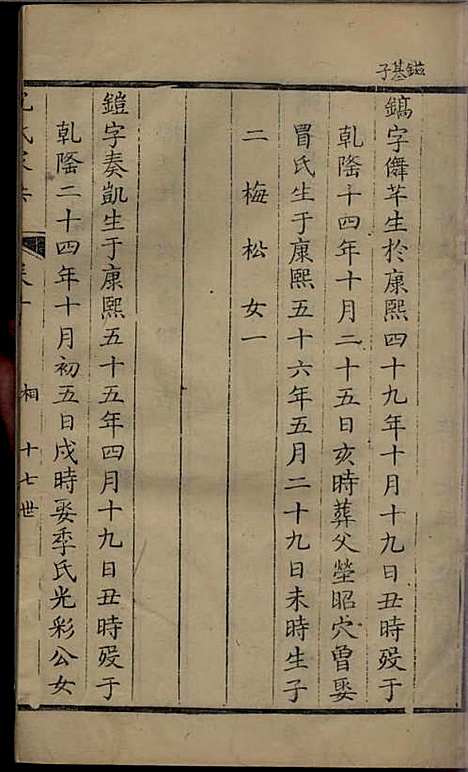 鎡基子
鎬字儛芊生於康熙四十九年十月十九日丑時歿于
乾隆十四年十月二十五日亥時葬父塋昭穴曾娶
冒氏生于康熙五十六年五月二十九日未時生子
二梅松女一
鎧字奏凱生于康熙五十五年四月十九日丑時歿于
乾隆二十四年十月初五日戌時娶季氏光彩公女
十七世